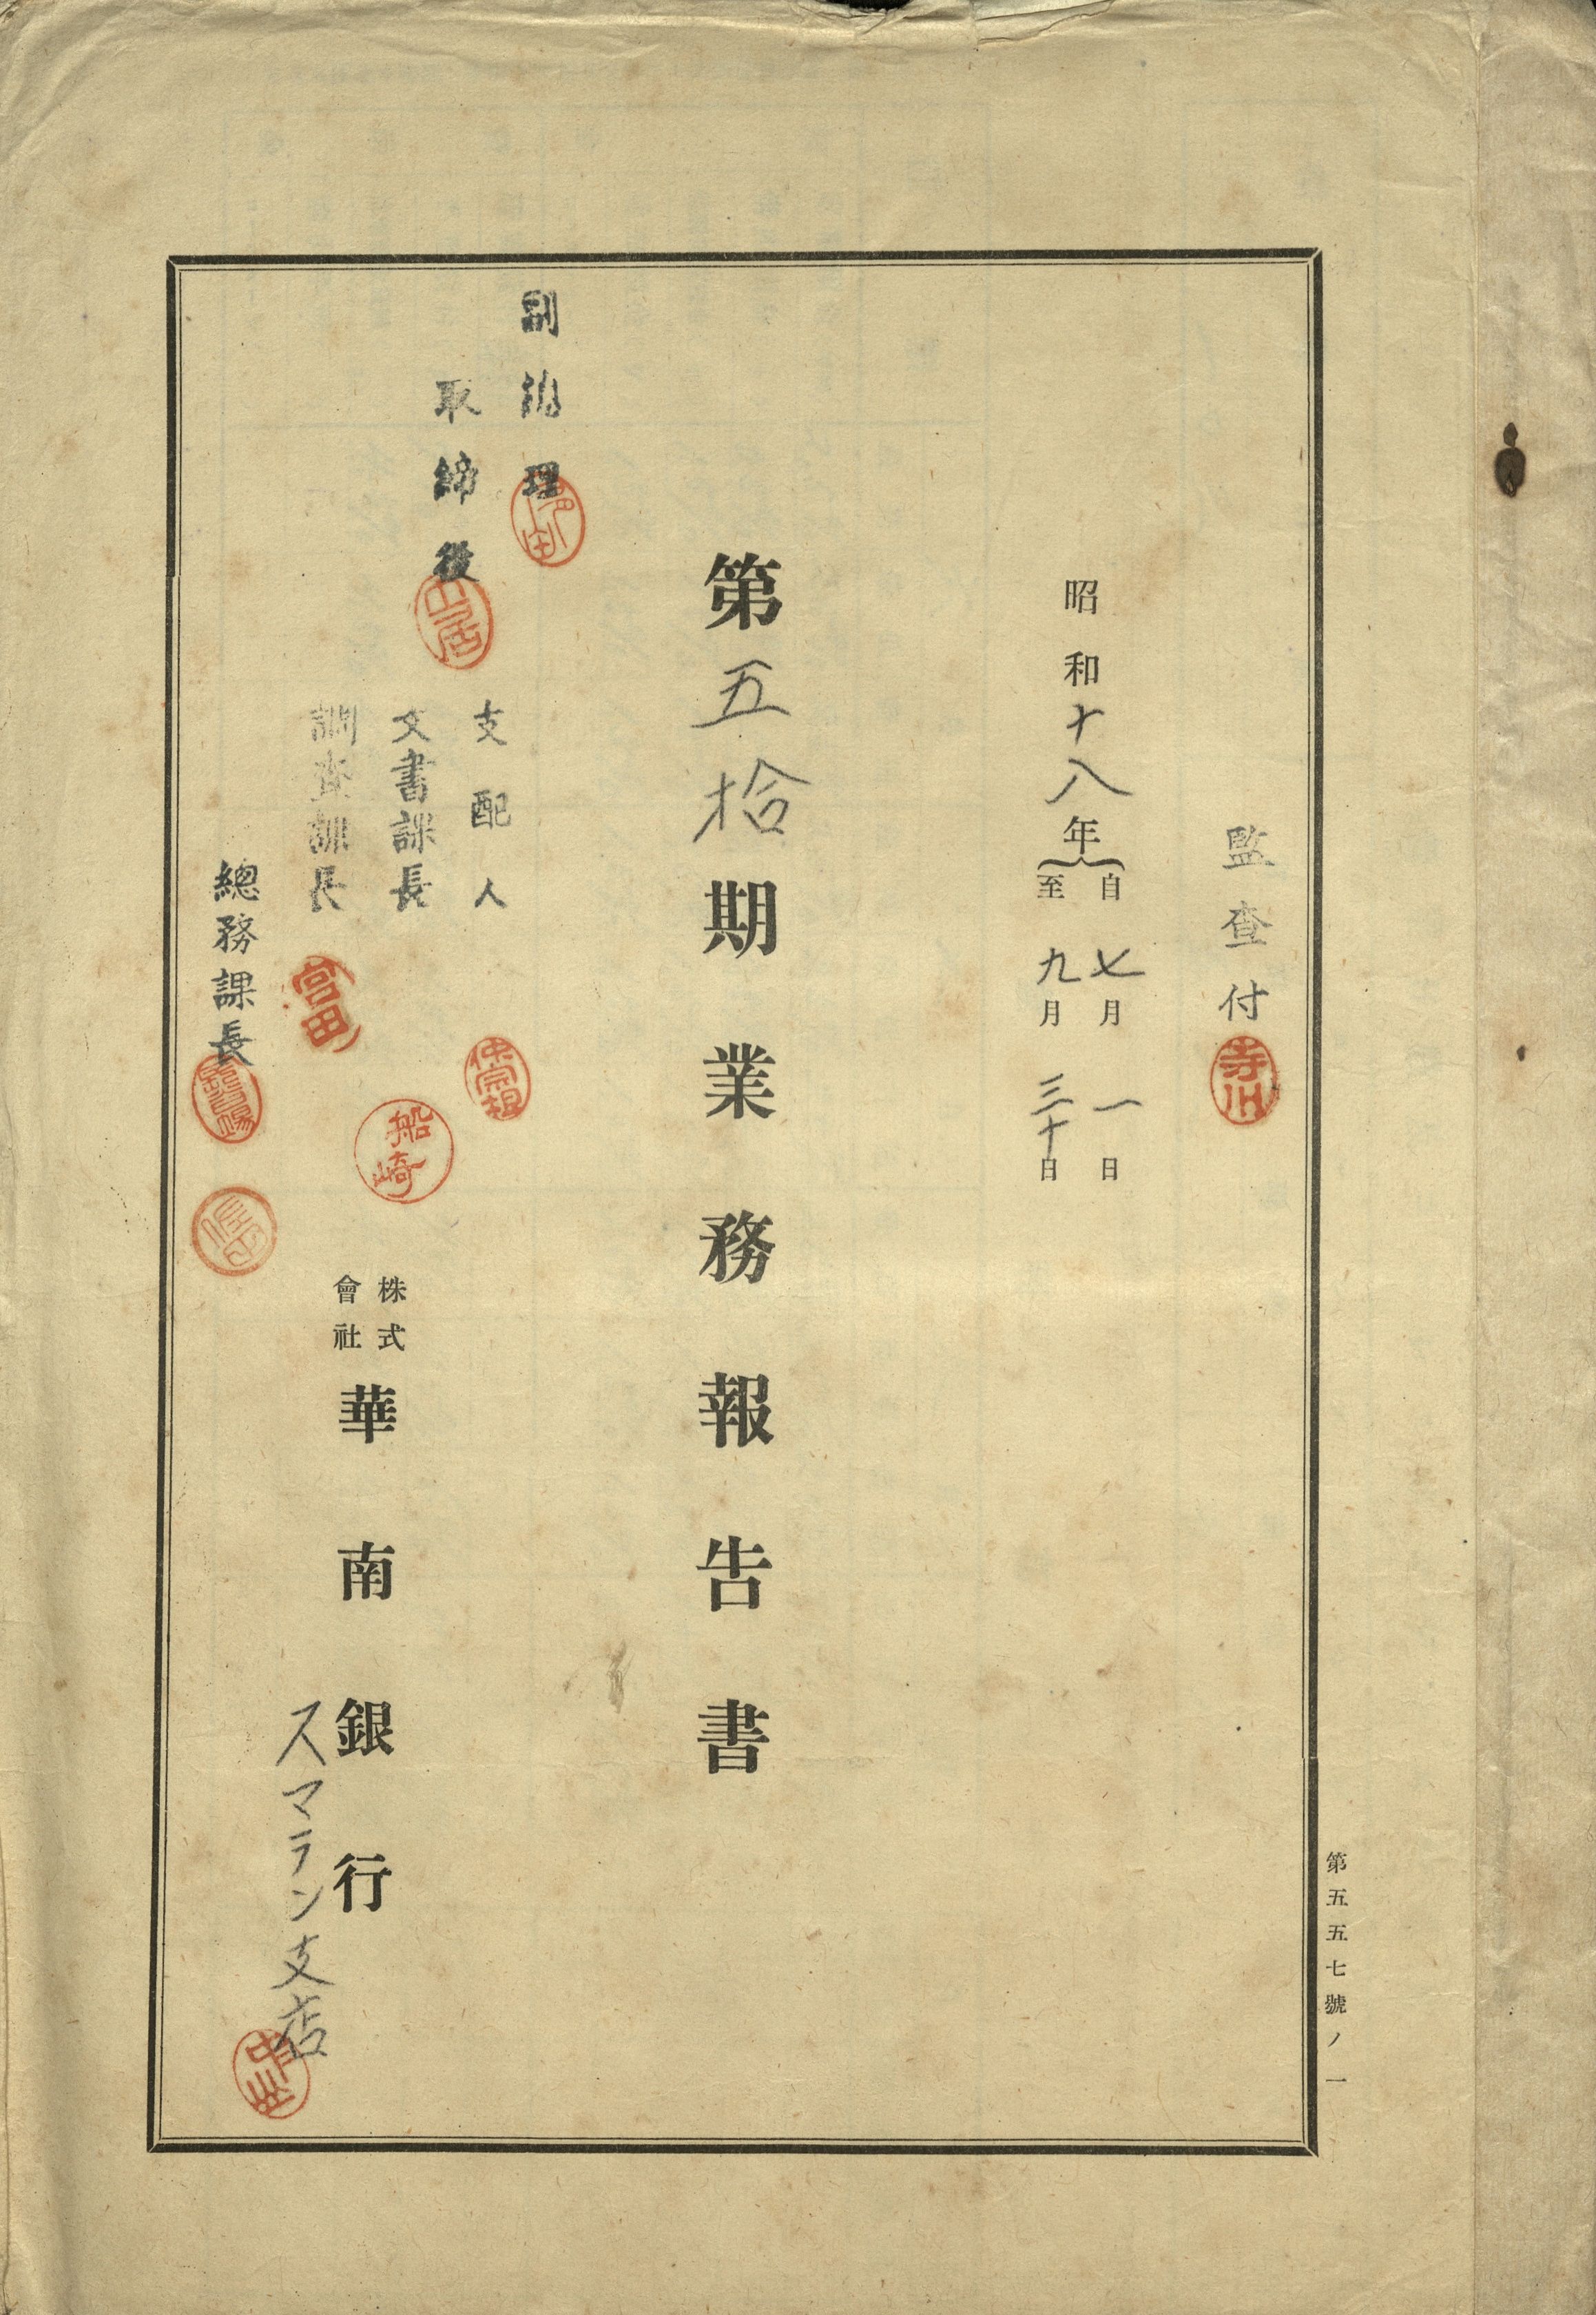 監査付
寺川
昭和十八年
自七月一日
至九月三十日
第五拾期業務報告書
副総理
取締役
支配人
文書課長
船崎
調査課長
富田
總務課長
株式會社
華南銀行
スマラン支店
第五五七號ノ一